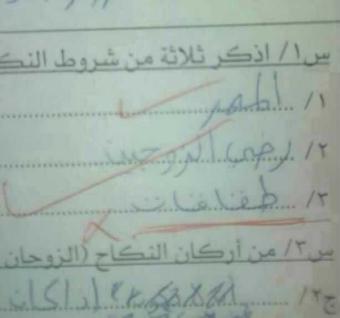 س١/ اذكر ثلاثة من شروط النك
١/ المهر
٢/ رضى الزوجين
٣/ طقاقات
س٢/ من أركان النكاح (الزوجان
ج٢/